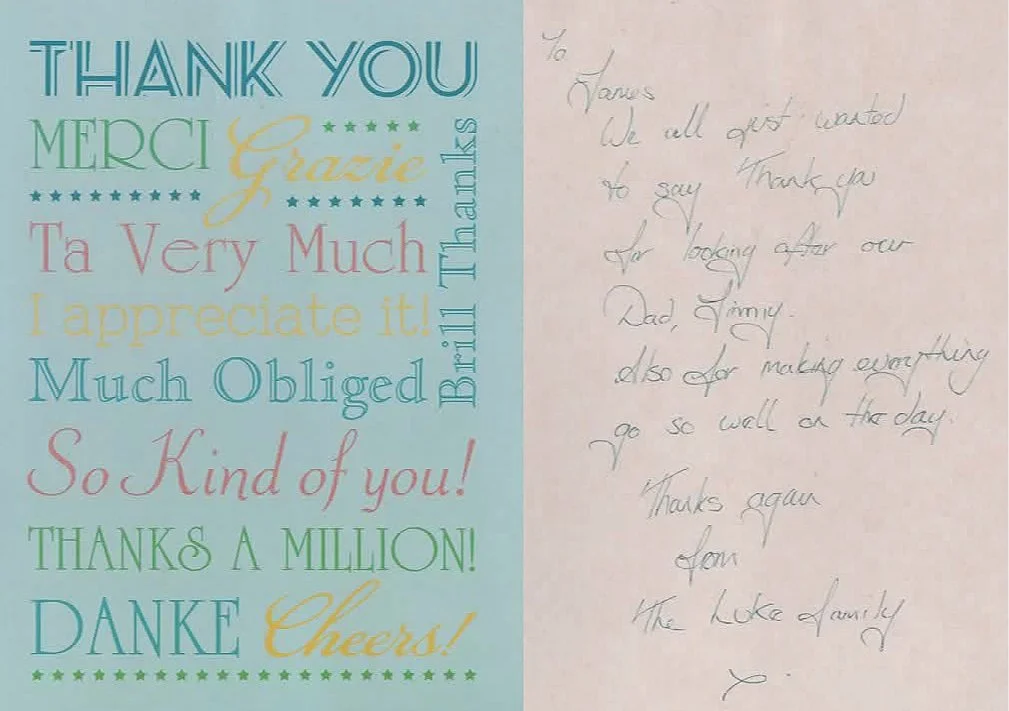 THANK YOU
MERCI Grazie
Brill Thanks
Ta Very Much
I appreciate it!
Much Obliged
So Kind of you!
THANKS A MILLION!
DANKE Cheers!
To
James
We all just wanted
to say Thank you
for looking after our
Dad, Jimmy.
Also for making everything
go so well on the day.
Thanks again
from
The Luke family
x.